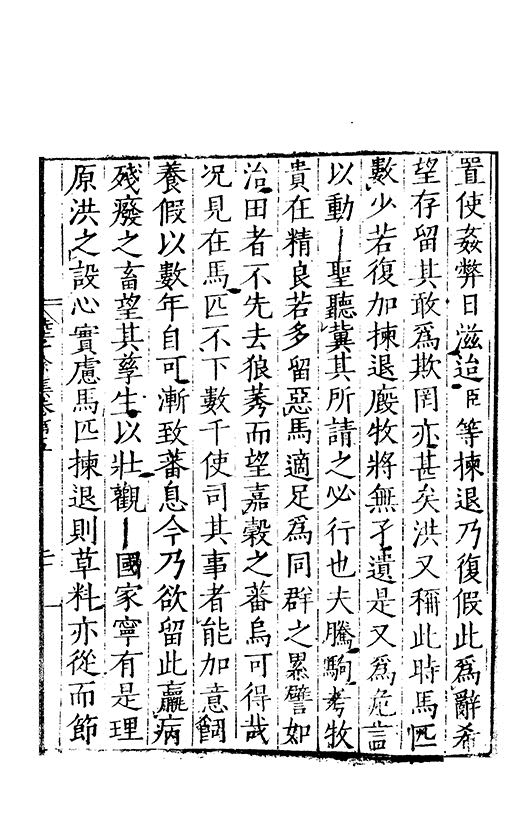 置使姦弊日滋迨臣等揀退乃復假此爲辭希
望存留其敢爲欺罔亦甚矣洪又稱此時馬匹
數少若復加揀退廄牧將無孑遺是又爲危言
以動聖聽冀其所請之必行也夫騰駒考牧
貴在精良若多留惡馬適足爲同群之累譬如
治田者不先去狼莠而望嘉穀之蕃烏可得哉
况見在馬匹不下數千使司其事者能加意芻
養假以數年自可漸致蕃息今乃欲留此羸病
殘癈之畜望其孳生以壯觀國家寧有是理
原洪之設心實慮馬匹揀退則草料亦從而節